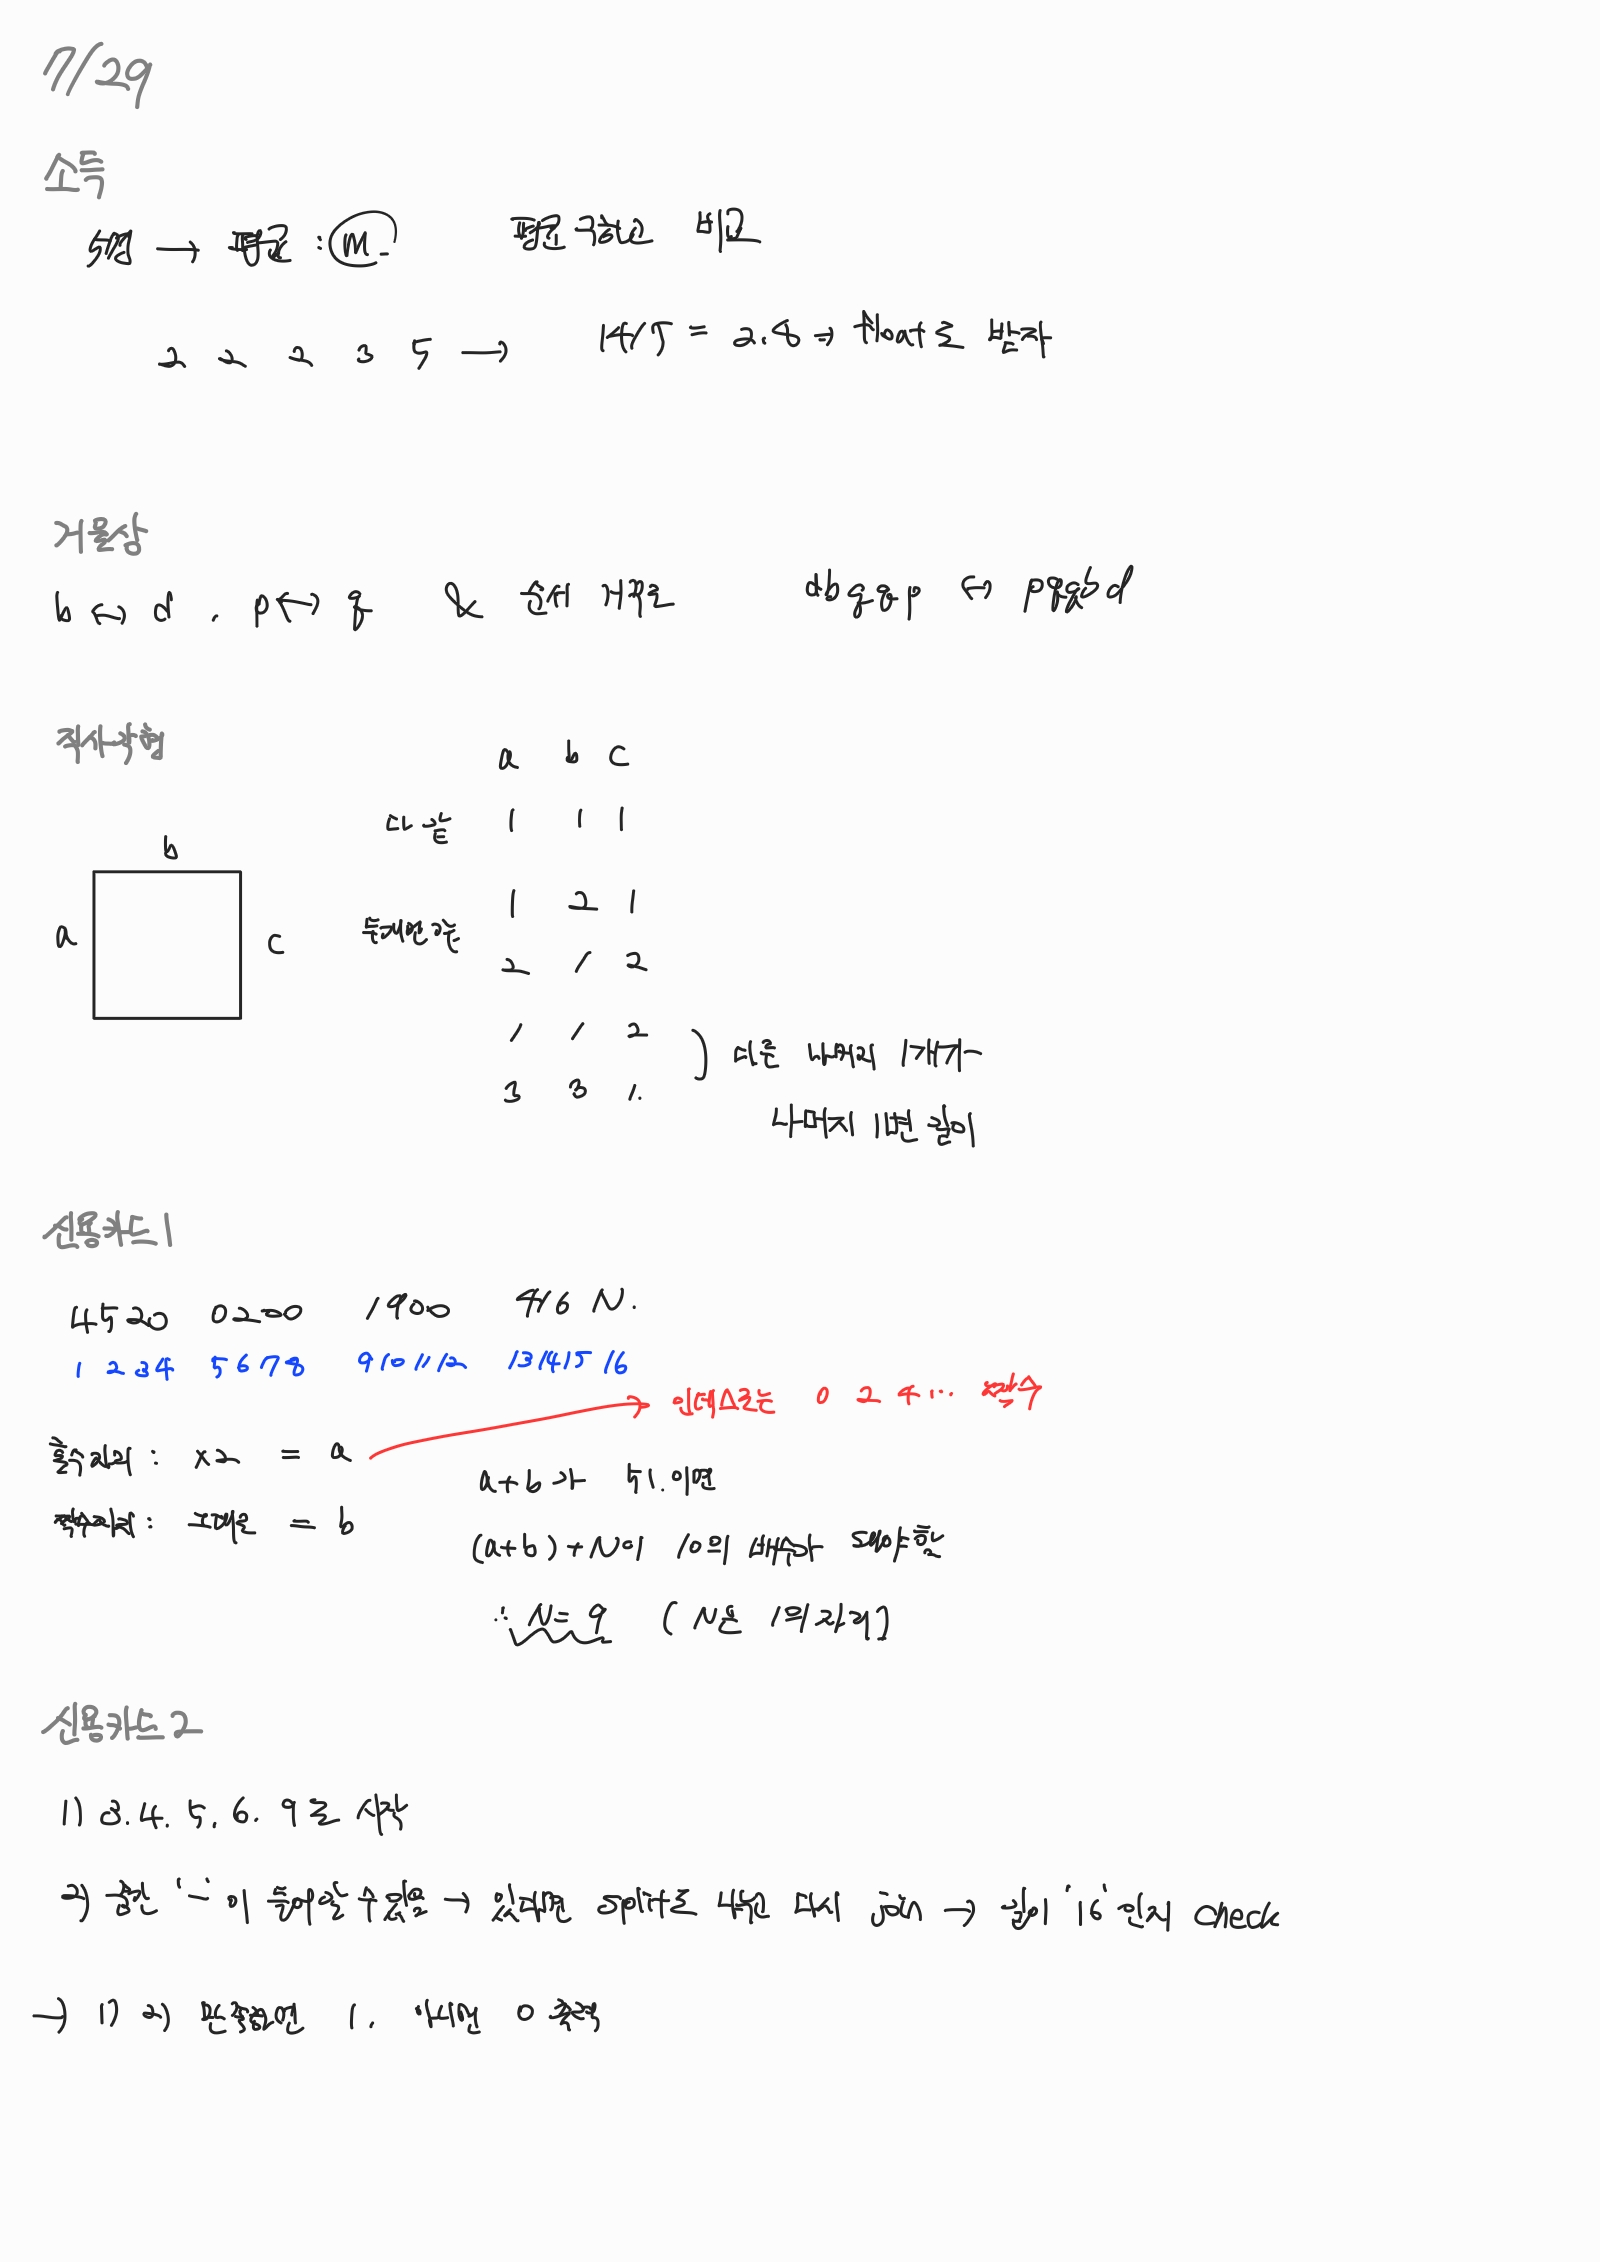 7/29
소득
5명 → 평균 : m 평균 구하고 비교
2 2 2 3 5 → 14/5 = 2.8 → float로 받자
거울상
b ↔ d . p ↔ q & 순서 거꾸로 dbqqp ↔ pqqbd
직사각형
a b c
다 같 1 1 1
b
1 2 1
a c 두개만 같은
2 1 2
1 1 2
다른 나머지 1개가
3 3 1.
나머지 1변 길이
신용카드1
4520 0200 1900 416 N.
1 2 3 4 5 6 7 8 9 10 11 12 13 14 15 16
→ 인덱스로는 0 2 4 ... 짝수
홀수자리 : x2 = a
a+b가 51.이면
짝수자리 : 그대로 = b
(a+b)+N이 10의 배수가 돼야함
∴ N=9 (N은 1의 자리)
신용카드2
1) 3.4.5.6.9로 시작
2) 중간 '-'이 들어갈 수 있음 → 있다면 split로 나눈 다시 join → 길이 '16'인지 check
→ 1) 2) 만족하면 1. 아니면 0 출력